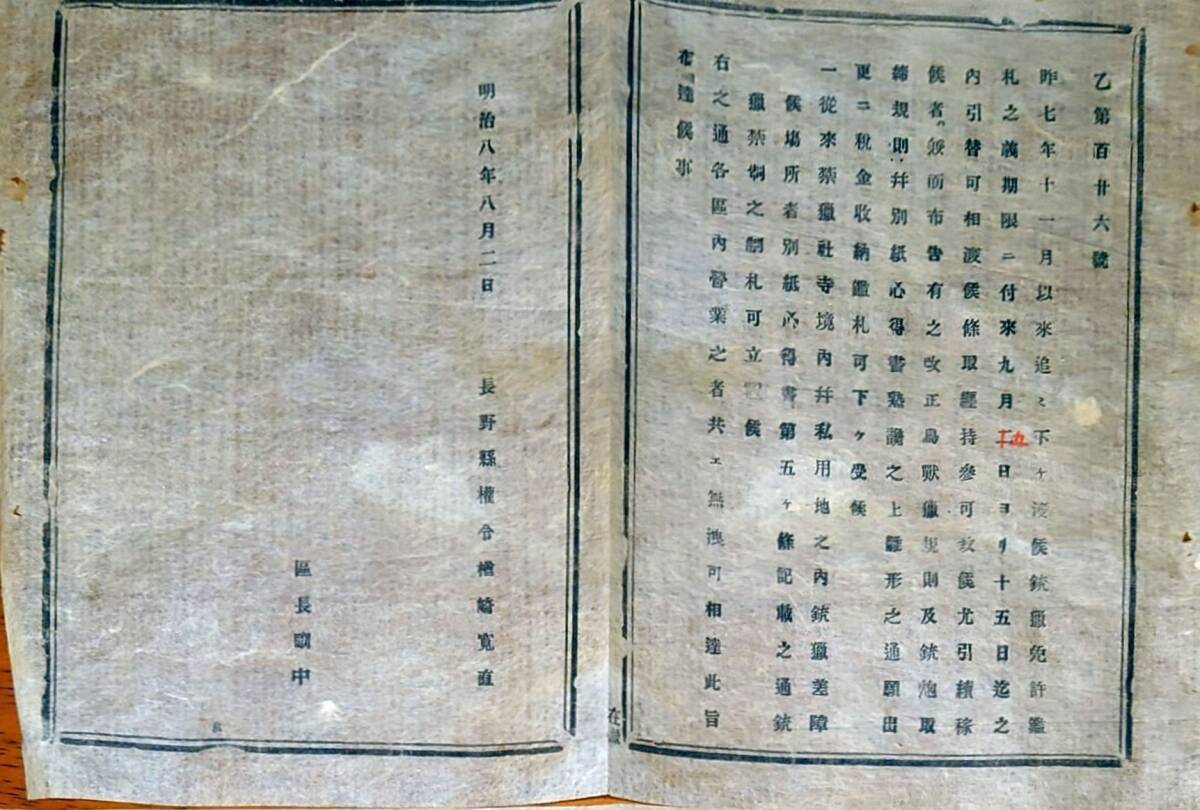 乙第百廿六號
昨七年十一月以來追々下ヶ渡候銃獵免許鑑
札之義期限ニ付來九月十五日ヨリ十五日迄之
內引替可相渡候條取纒持參可致候尤引續稼
候者ハ該布告有之改正鳥獸獵規則及銃炮取
締規則幷別紙心得書熟讀之上雛形之通願出
更ニ稅金收納鑑札可下ヶ受候
一從來禁獵社寺境內幷私用地之內銃獵差障
候塲所者別紙心得書第五ヶ條記載之通銃
獵禁制之制札可立置候
右之通各區內營業之者共ェ無洩可相達此旨
布達候事
明治八年八月二日
長野縣權令楢﨑寬直
區長
中